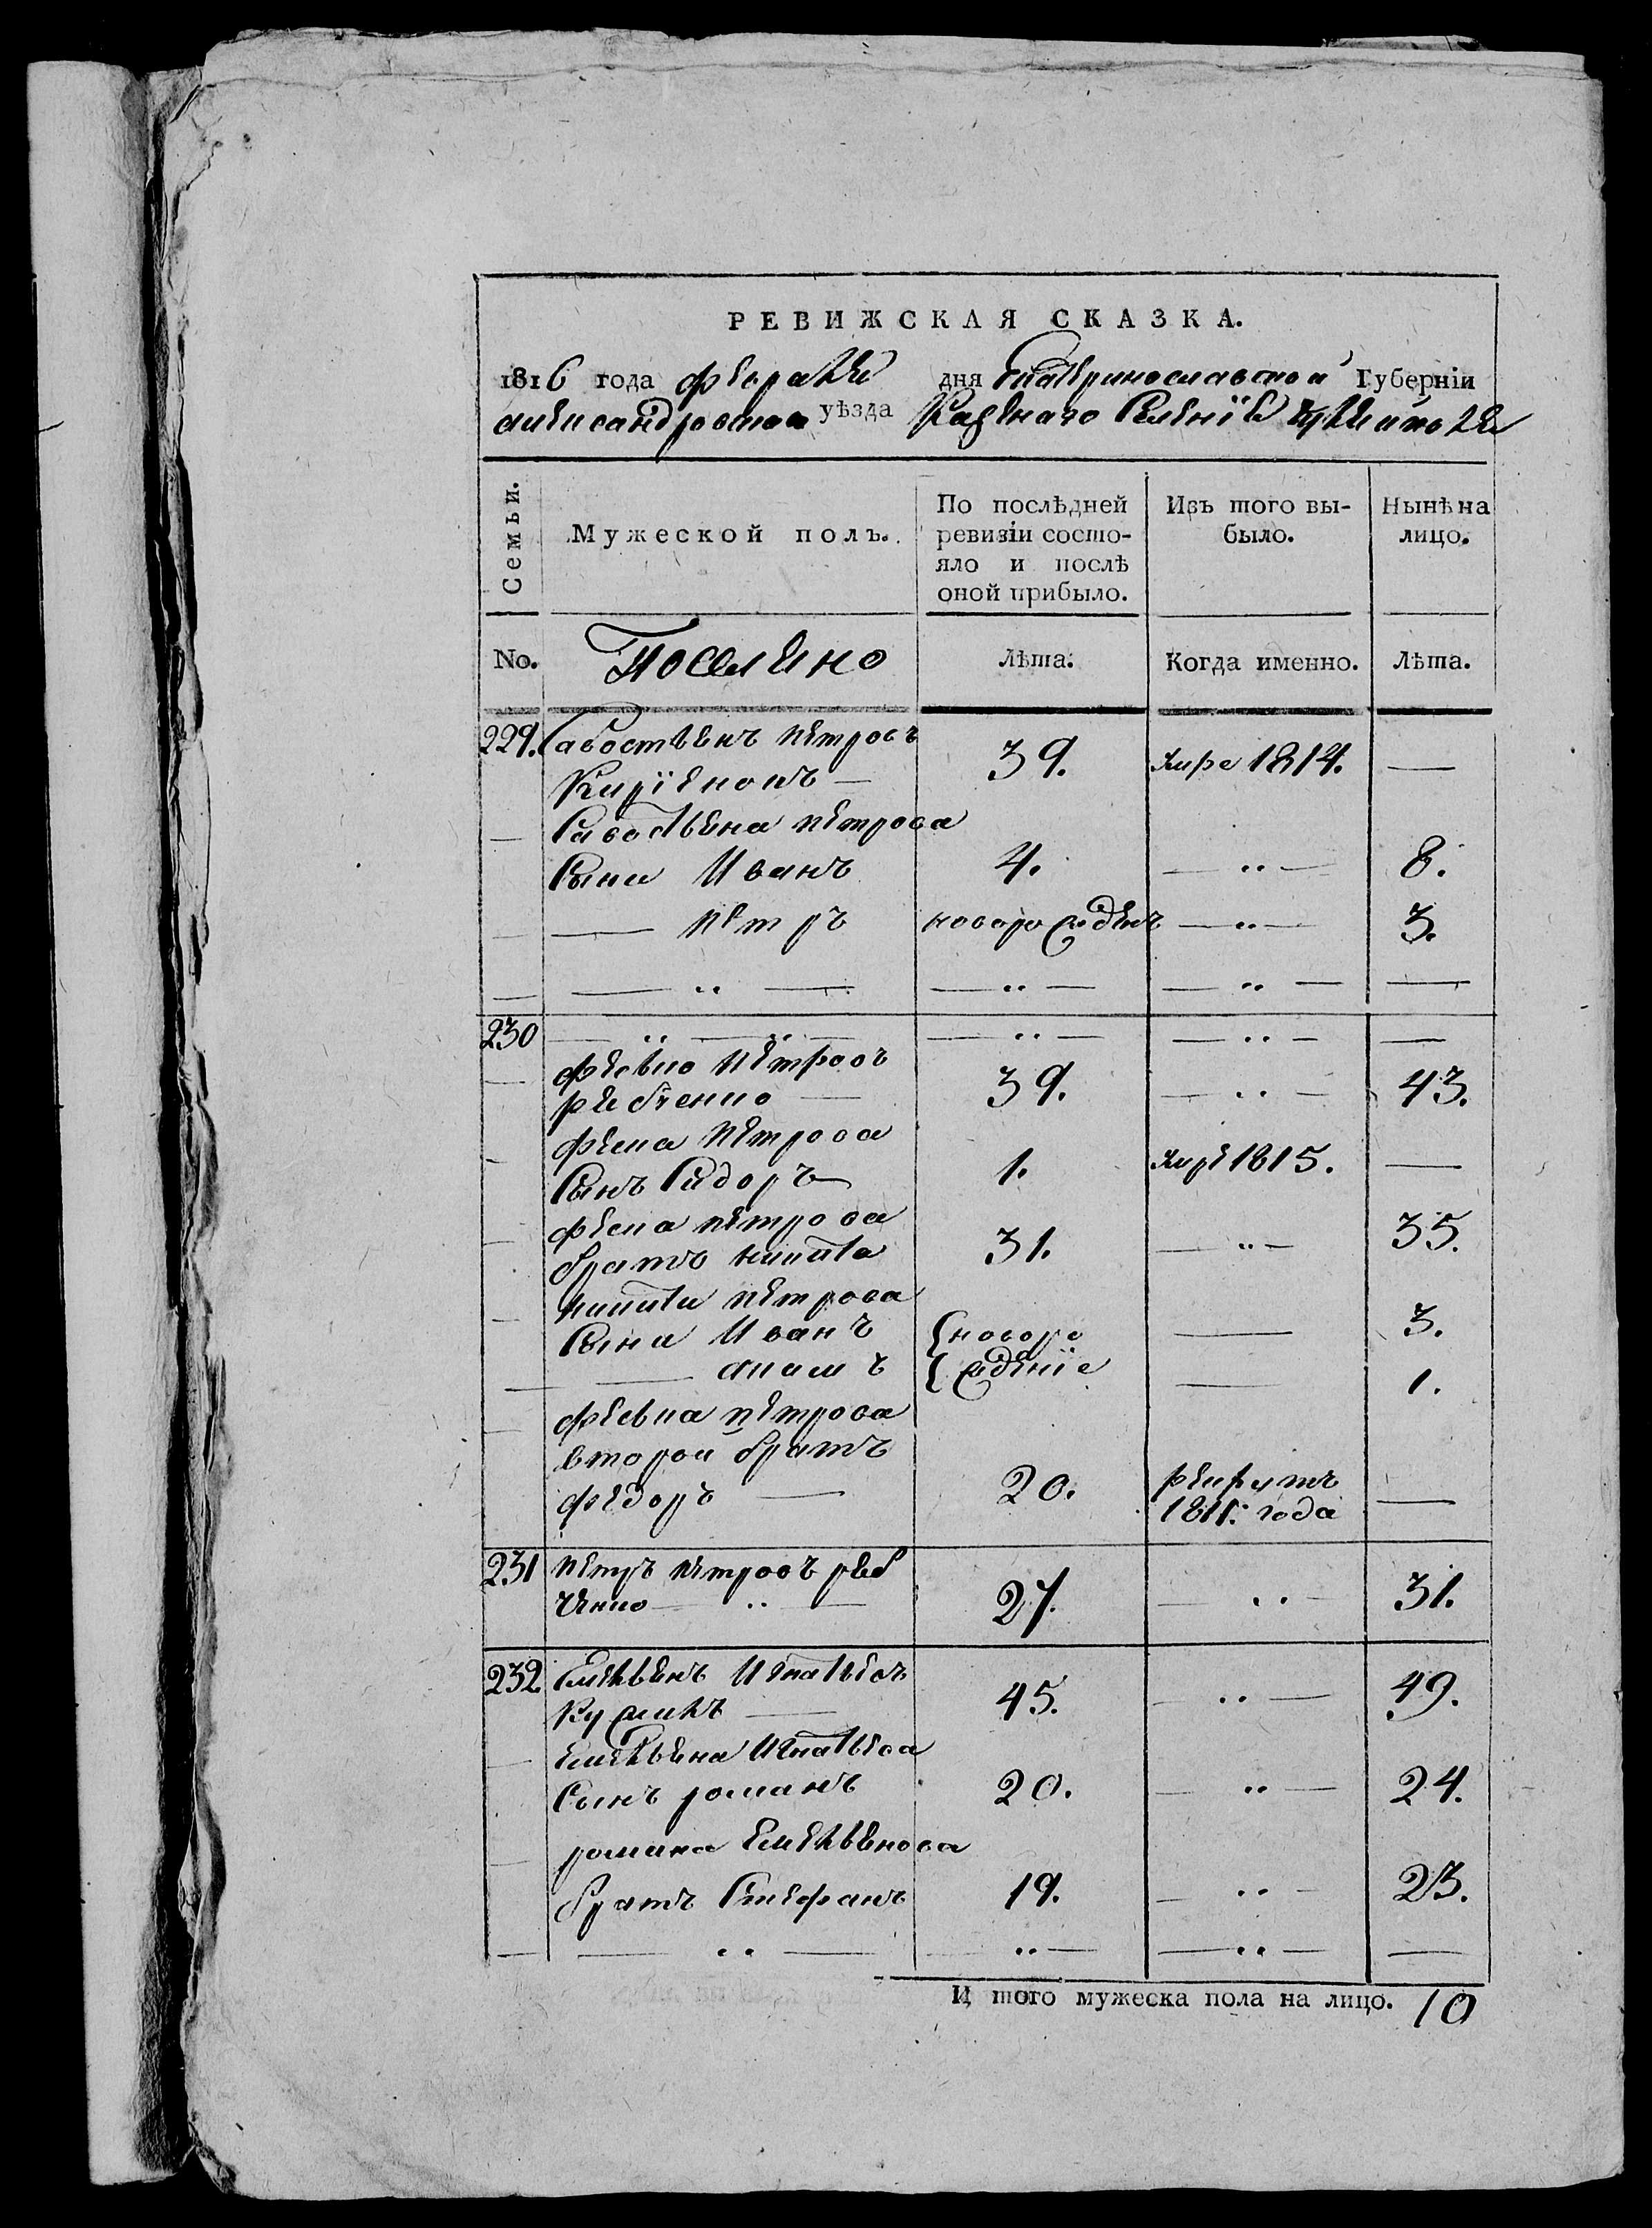 РЕВИЖСКАЯ СКАЗКА.
1816 года февраля дня Екатеринославской Губерніи
александровского уѣзда Казенаго Селенія
Семьи. Мужеской полъ. По послѣдней ревизіи состояло и послѣ оной прибыло. Изъ того выбыло. Нынѣ на лицо.
No. Поселяно Лѣта. Когда именно. Лѣта.
229. Савостьянъ петровъ
Кирїенокъ — 39. умре 1814. —
— Савостьяна петрова
Сыни Иванъ 4. — „ — 8.
— — петръ новорожденъ — „ — 3.
— — „ — — „ — — „ — —
230 — „ — „ — — „ — — „ — —
— февко петровъ
рябченко — 39. — „ — 43.
— фека петрова
Сынъ Сидоръ 1. умре 1815. —
— фека петрова
братъ никита 31. — „ — 35.
— никиты петрова
Сыни Иванъ новоро — 3.
— — жденїе — 1.
— февка петрова
второй братъ
федоръ — 20. рекрутъ —
1811: года
231 петръ петровъ ряб
ченко — „ — 27. — „ — 31.
232 Емельянъ Игнатьевъ
— 45. — „ — 49.
— емельяна Игнатьева
Сынъ романъ 20. „ — 24.
— романа Емельянова
братъ Стефанъ 19. — „ — 23.
— — „ — — „ — — „ — —
И того мужеска пола на лицо. 10